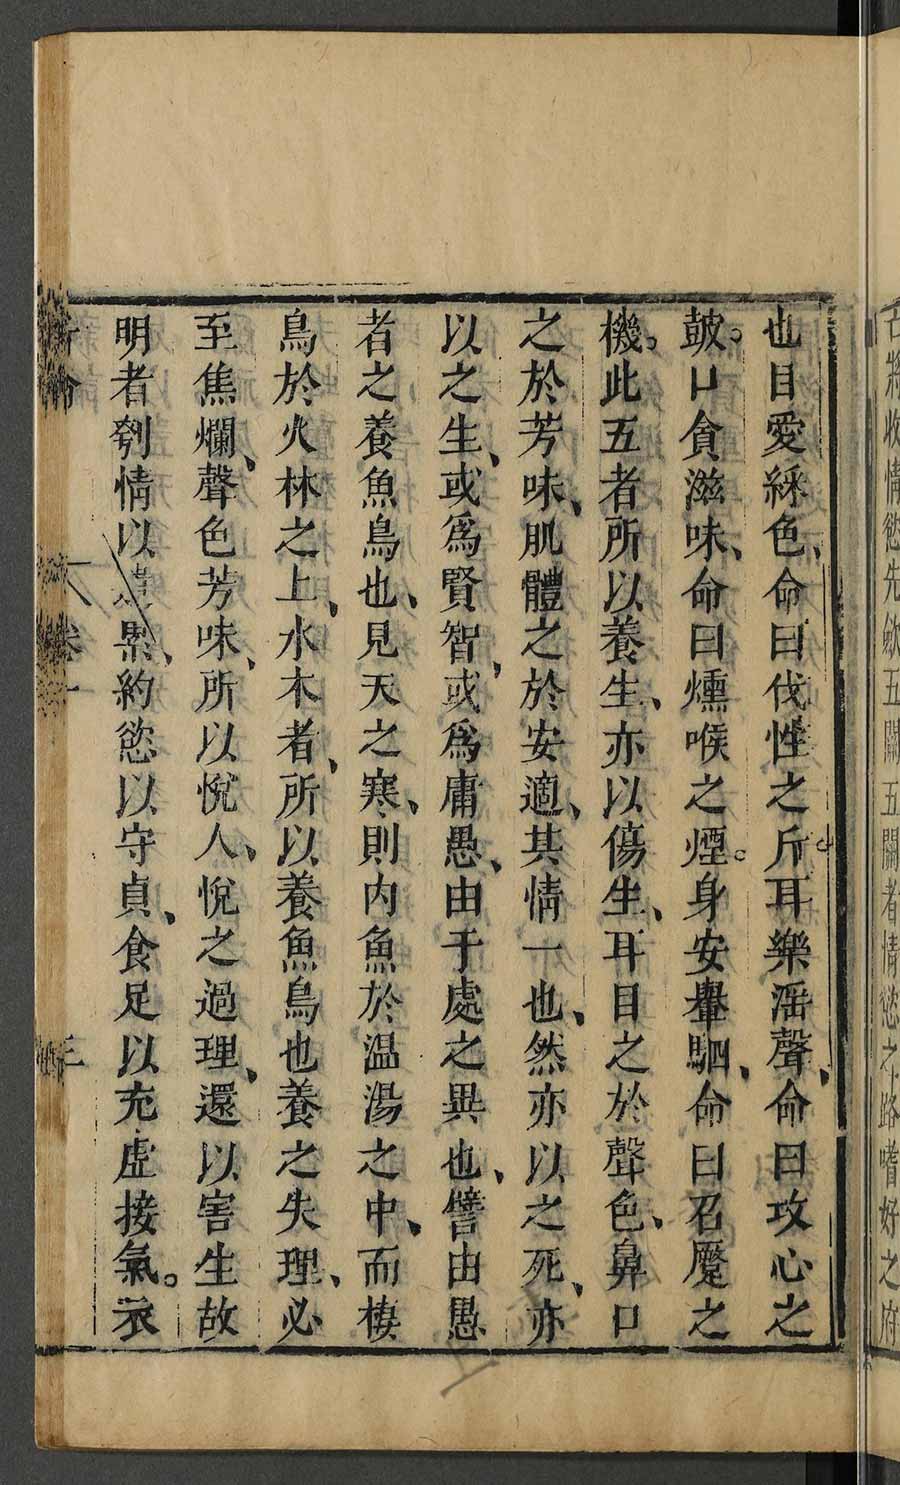 名將收情慾先斂五關五關者情慾之路嗜好之府
也目愛綵色、命曰伐性之斤耳樂淫聲、命曰攻心之
皷。口貪滋味、命曰熏喉之煙。身安轝駟、命曰召蹷之
機。此五者所以養生、亦以傷生、耳目之於聲色、鼻口
之於芳味、肌體之於安適、其情一也、然亦以之死、亦
以之生、或爲賢智、或爲庸愚、由于處之異也、譬由愚
者之養魚鳥也、見天之寒、則内魚於温湯之中、而棲
鳥於火林之上、水木者、所以養魚鳥也養之失理、必
至焦爛、聲色芳味、所以悅人、悅之過理、還以害生故
明者刳情以遣累、約慾以守貞、食足以充虛接氣。衣
新論 卷一 三